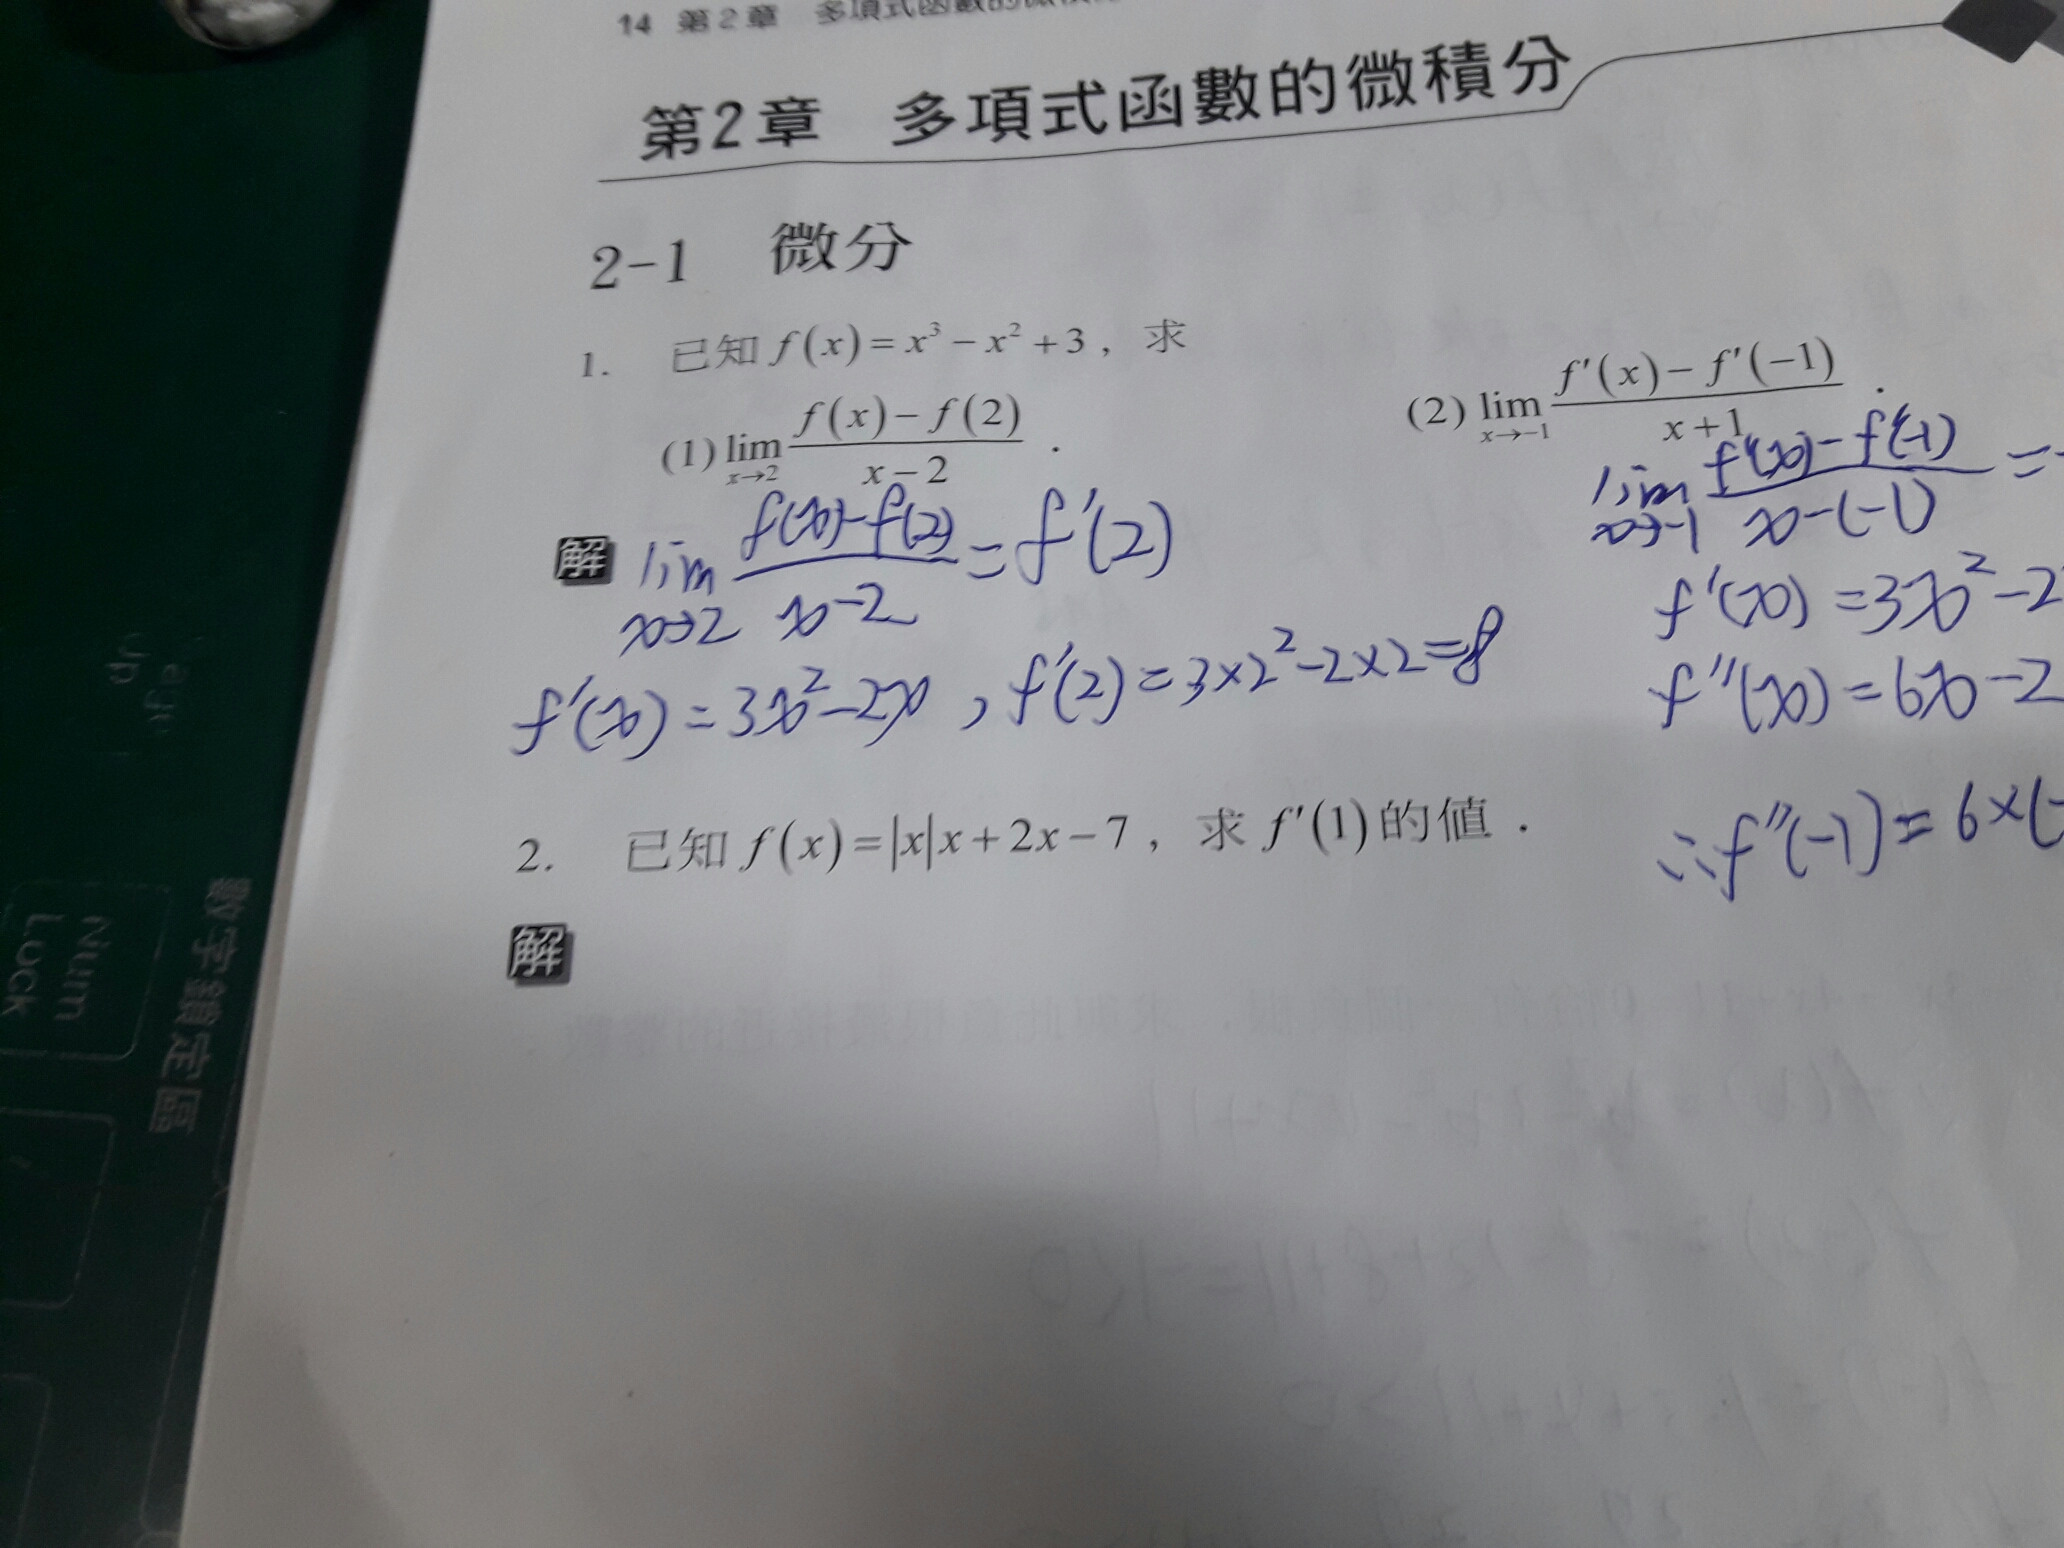 14 第2章 多項式函數的微積分
第2章 多項式函數的微積分
2-1 微分
1. 已知 f(x)=x³-x²+3，求
(1) lim x→2 f(x)-f(2) / x-2 .
(2) lim x→-1 f'(x)-f'(-1) / x+1 .
解 lim x→2 f(x)-f(2) / x-2 = f'(2)
f'(x)=3x²-2x , f'(2)=3×2²-2×2=8
lim x→-1 f'(x)-f'(-1) / x-(-1) =
f'(x)=3x²-2
f''(x)=6x-2
∴f''(-1)=6×(-
2. 已知 f(x)=|x|x+2x-7，求 f'(1) 的值．
解
Num
Lock
數字鎖定區